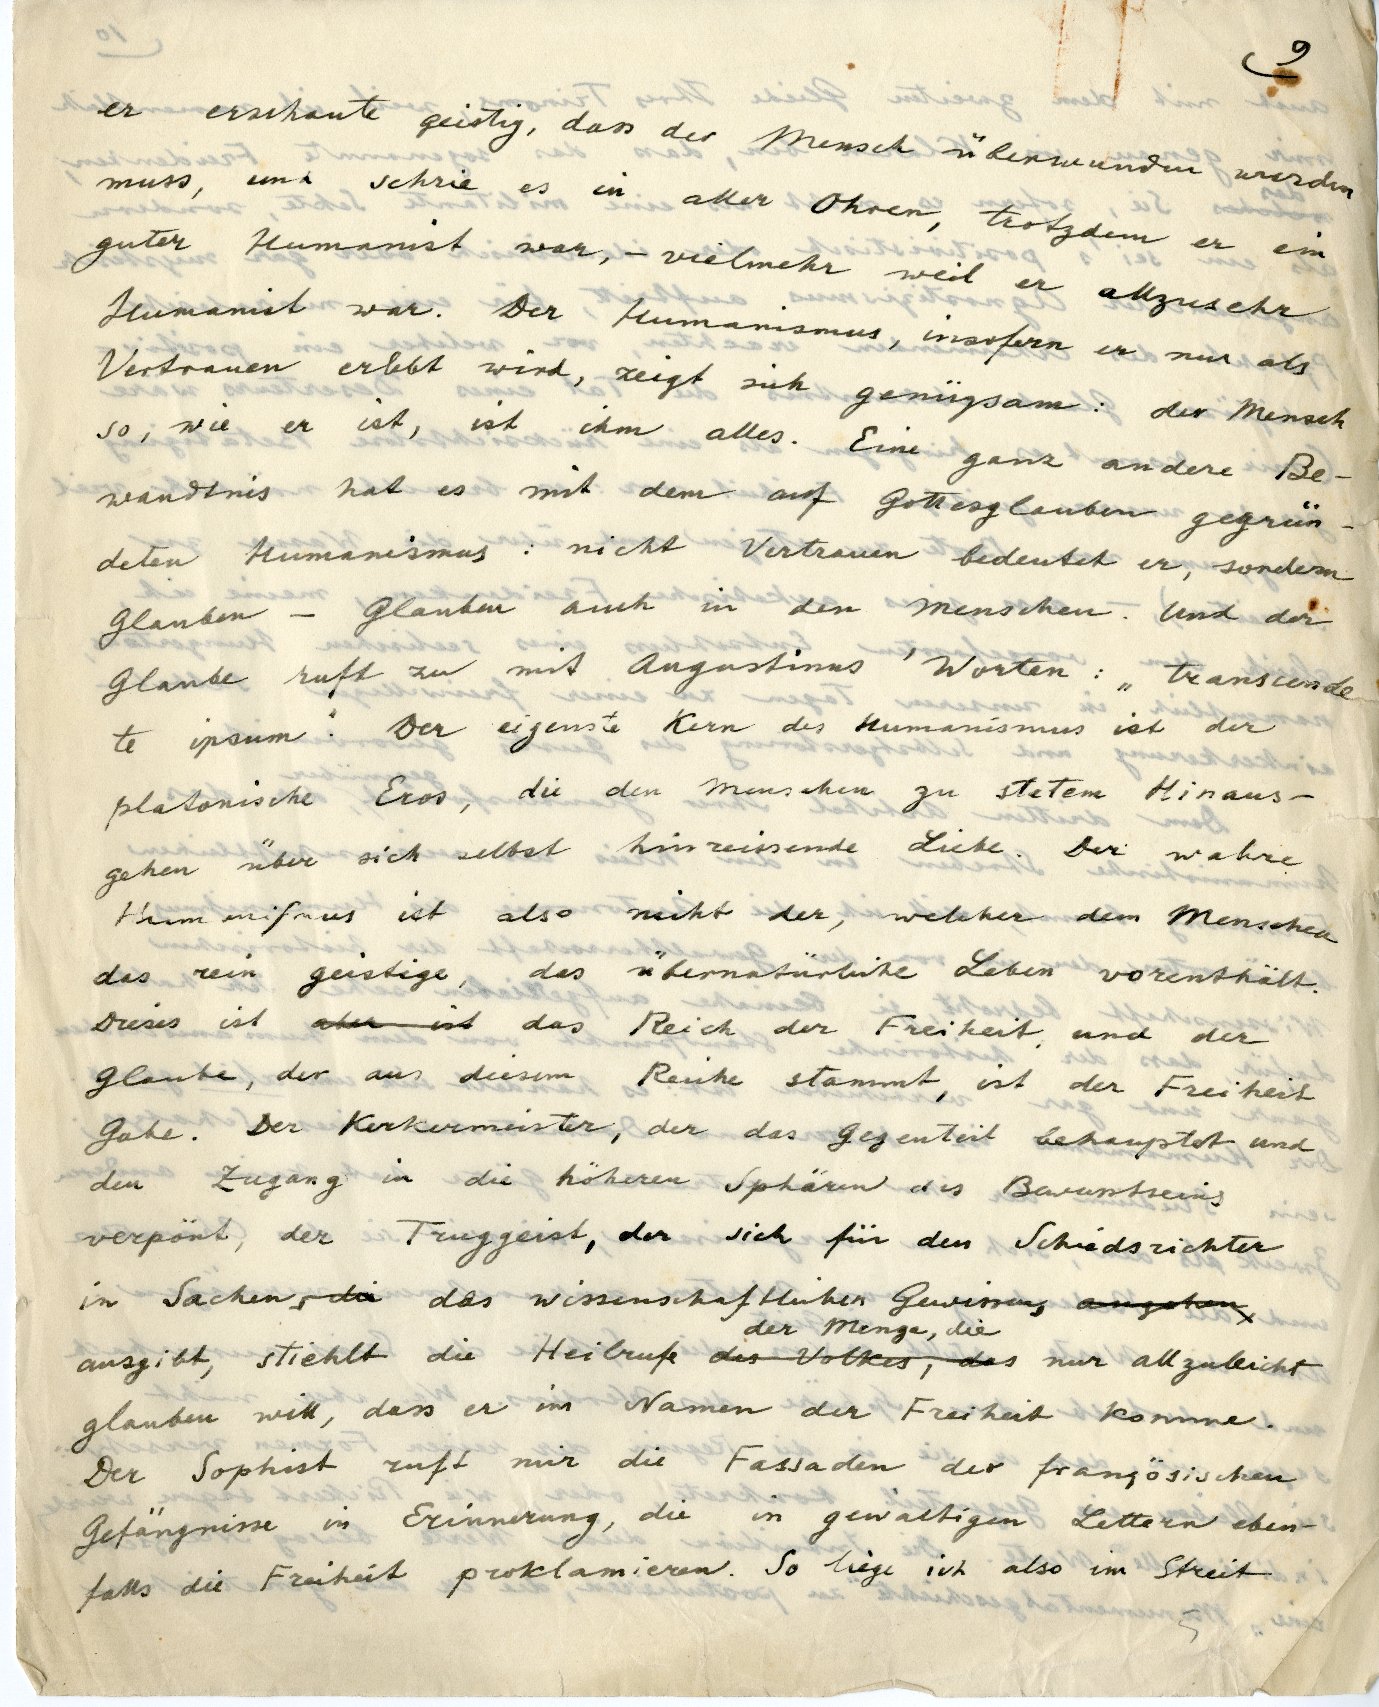 9
er erschaute geistig, dass der Mensch überwunden werden
muss, und schrie es in aller Ohren, trotzdem er ein
guter Humanist war, – vielmehr weil er allzusehr
Humanist war. Der Humanismus, insofern er nur als
Vertrauen erlebt wird, zeigt sich genügsam: der Mensch
so, wie er ist, ist ihm alles. Eine ganz andere Be-
wandtnis hat es mit dem auf Gottesglauben gegrün-
deten Humanismus: nicht Vertrauen bedeutet er, sondern
Glauben – Glauben auch in den Menschen. Und der
Glaube ruft zu mit Augustinus' Worten: „transcende
te ipsum". Der eigenste Kern des Humanismus ist der
platonische Eros, die den Menschen zu stetem Hinaus-
gehen über sich selbst hinreissende Liebe. Der wahre
Humanismus ist also nicht der, welcher dem Menschen
das rein geistige, das übernatürliche Leben vorenthält.
Dieses ist aber ist das Reich der Freiheit, und der
Glaube, der aus diesem Reiche stammt, ist der Freiheit
Gabe. Der Kerkermeister, der das Gegenteil behauptet und
den Zugang in die höheren Sphären des Bewusstseins
verpönt, der Truggeist, der sich für den Schiedsrichter
in Sachen, die das wissenschaftlichen Gewissens angehen,
der Menge, die
ausgibt, stiehlt die Heilrufe des Volkes, das nur allzuleicht
glauben will, dass er im Namen der Freiheit komme.
Der Sophist ruft mir die Fassaden der französischen
Gefängnisse in Erinnerung, die in gewaltigen Lettern eben-
falls die Freiheit proklamieren. So liege ich also im Streit